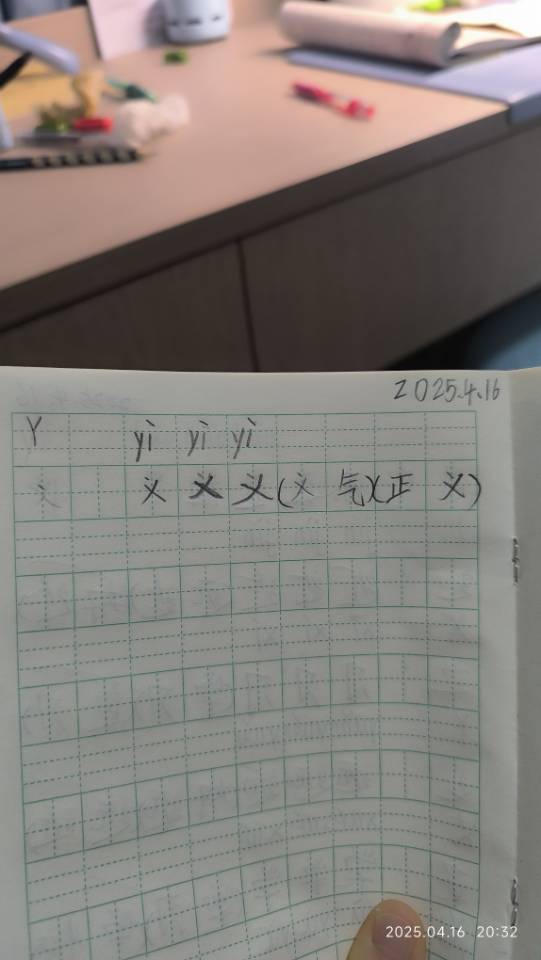 2025.4.16
Y yì yì yì
义 义 义 义(义气)(正义)
2025.04.16 20:32